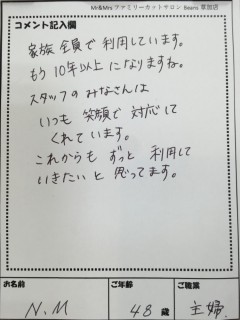 Mr&Mrs ファミリーカットサロン Beans 草加店
コメント記入欄
家族全員で利用しています。
もう10年以上になりますね。
スタッフのみなさんは
いつも笑顔で対応して
くれています。
これからもずっと利用して
いきたいと思ってます。
お名前 ご年齢 ご職業
N.M 48歳 主婦.